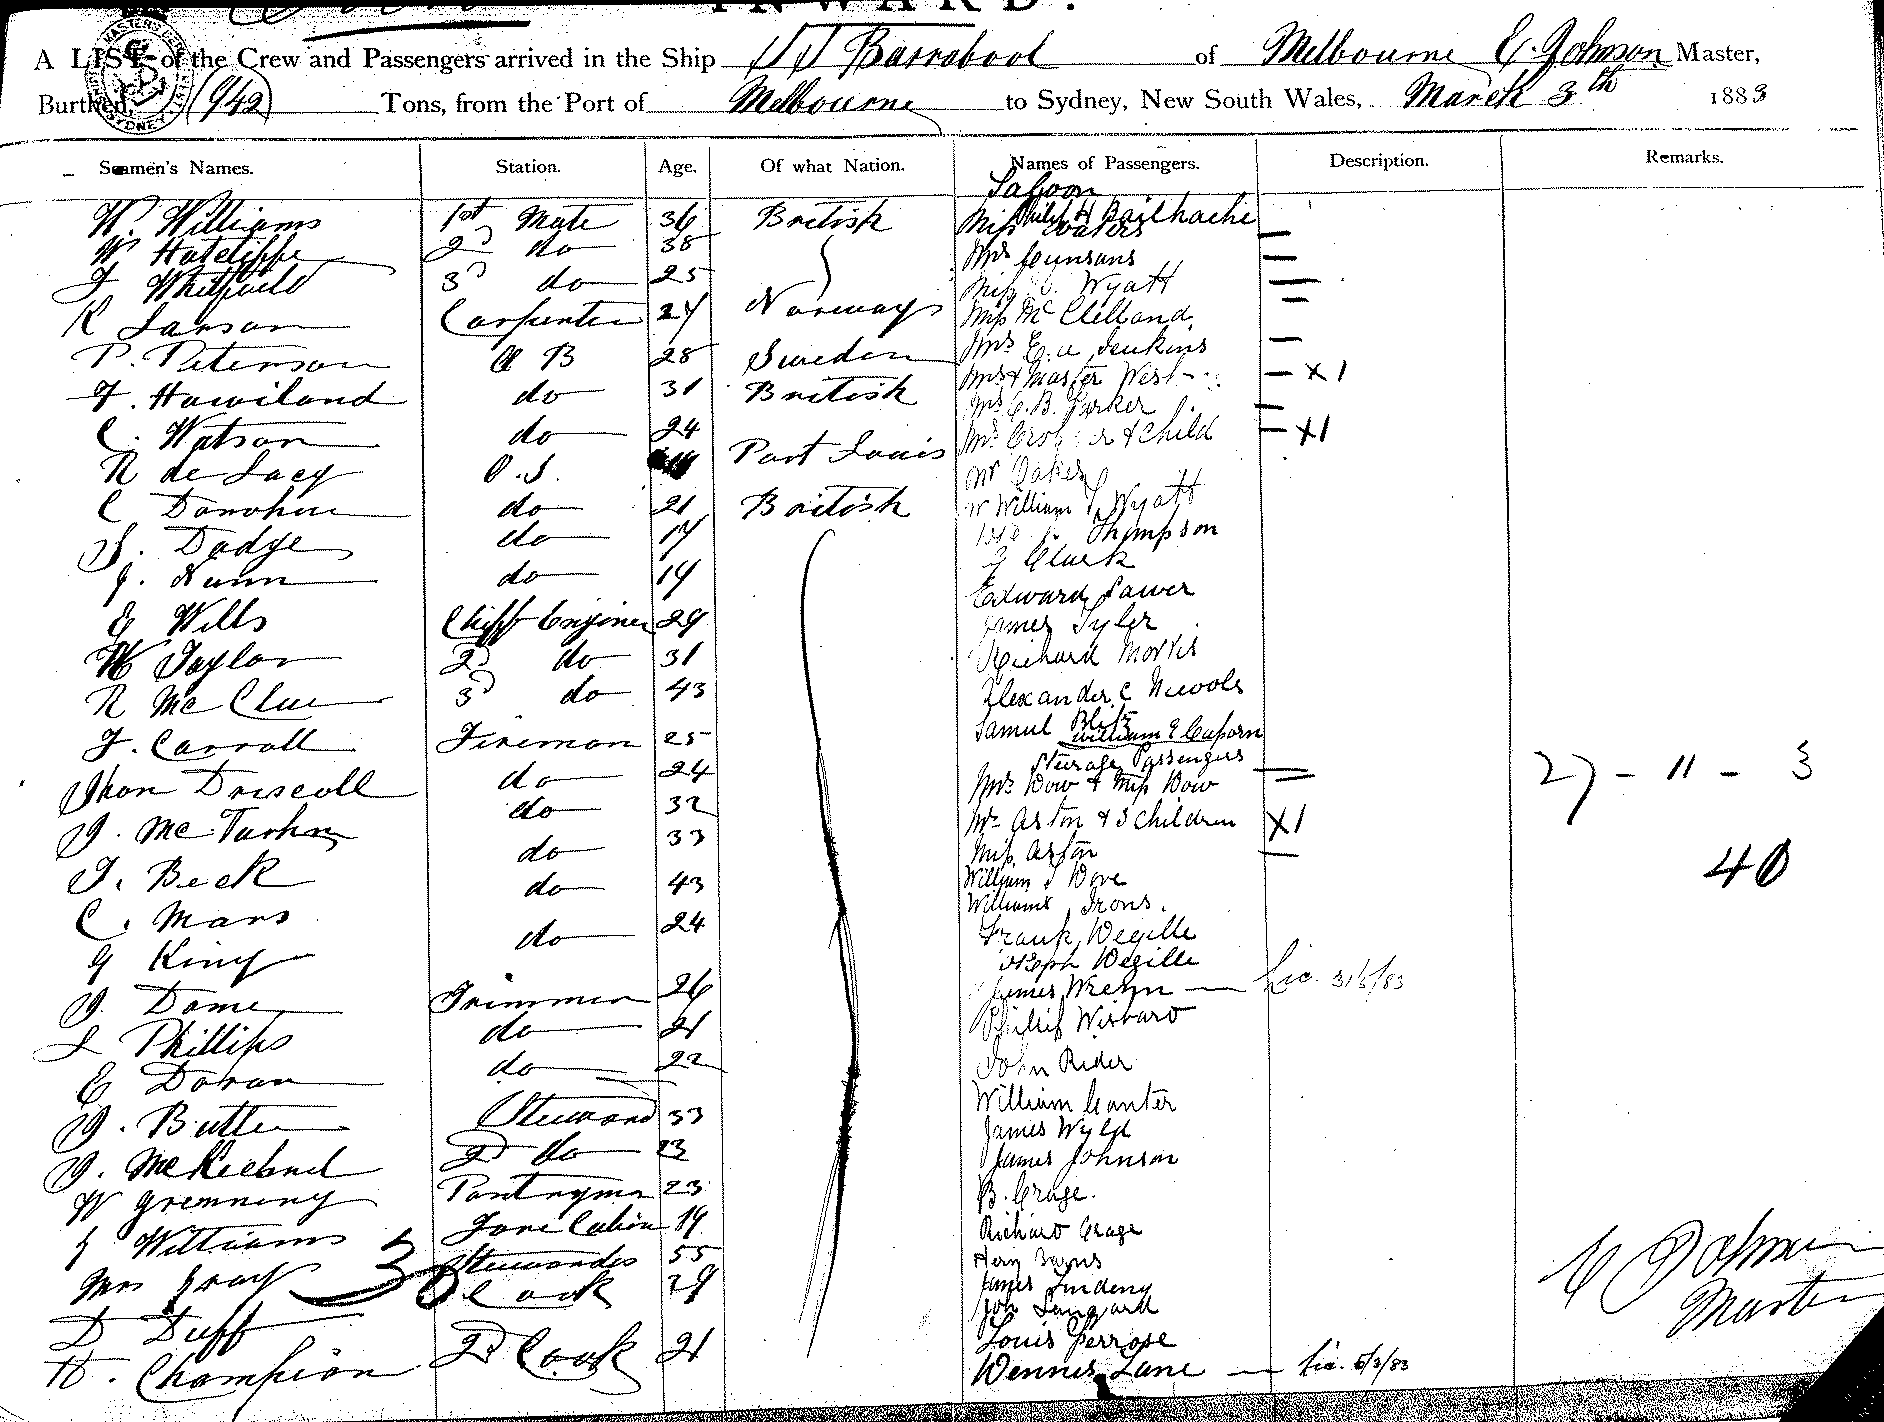 INWARD.
A LIST of the Crew and Passengers arrived in the Ship SS Barrabool of Melbourne C. Johnson Master,
Burthen 942 Tons, from the Port of Melbourne to Sydney, New South Wales, March 3th 1883
Seamen's Names. Station. Age. Of what Nation. Names of Passengers. Description. Remarks.
Saloon
W. Williams 1st Mate 36 British Philip H Bailhache
Miss Waters
W Hatcliffe 2d do 38 Mrs
F Whitfield 3d do 25 Miss Wyatt
K Larson Carpenter 24 Norway Miss McClelland
P. Peterson A B 28 Sweden Mrs E. A Jenkins
F. Haviland do 31 British Mrs & Master West X1
Mrs C. B. Parker
C. Watson do 24 Mrs & Child X1
R de Lacy O.S. Port Louis Mr Oakes
C Donohue do 21 British William Wyatt
S. Dodge do 17 Thompson
Clark
J. Nunn do 19 Edward Power
E Wills Chiff Enginer 29 James Tyler
W Taylor 2d do 31 Richard Morris
R McClue 3d do 43 Alexander C
F. Carroll Fireman 25 Samul
William E Caporn
Steerage Passengers
Jhon Driscoll do 24 Mrs Dow & Miss Dow 27 - 11 - 3
J. Mc do 32 Mr Aston & 3 Children X1
33 Miss Aston 40
J. Beck do 43 William Dove
Williams Irons.
C. Mars do 24 Frank Wegille
G King do Joseph Wegille
J. Dome Trimmer 26 James Lic. 31/5/83
J Phillips do 21 Philip
E Doran do 22 John Rider
J. Butler Steward 33 William Canter
James Wyld
J. 2d do 23 James Johnson
W Pantryman 23 B. Crage.
J Williams Fore Cabin 19 Richard Crage
Mrs Gray 30 Stewardes 55 James
D Duff Cook 29 C Johnson
Louis Perrose Master
H. Champion 2d Cook 21 Dennis Lane Lic. 5/3/83